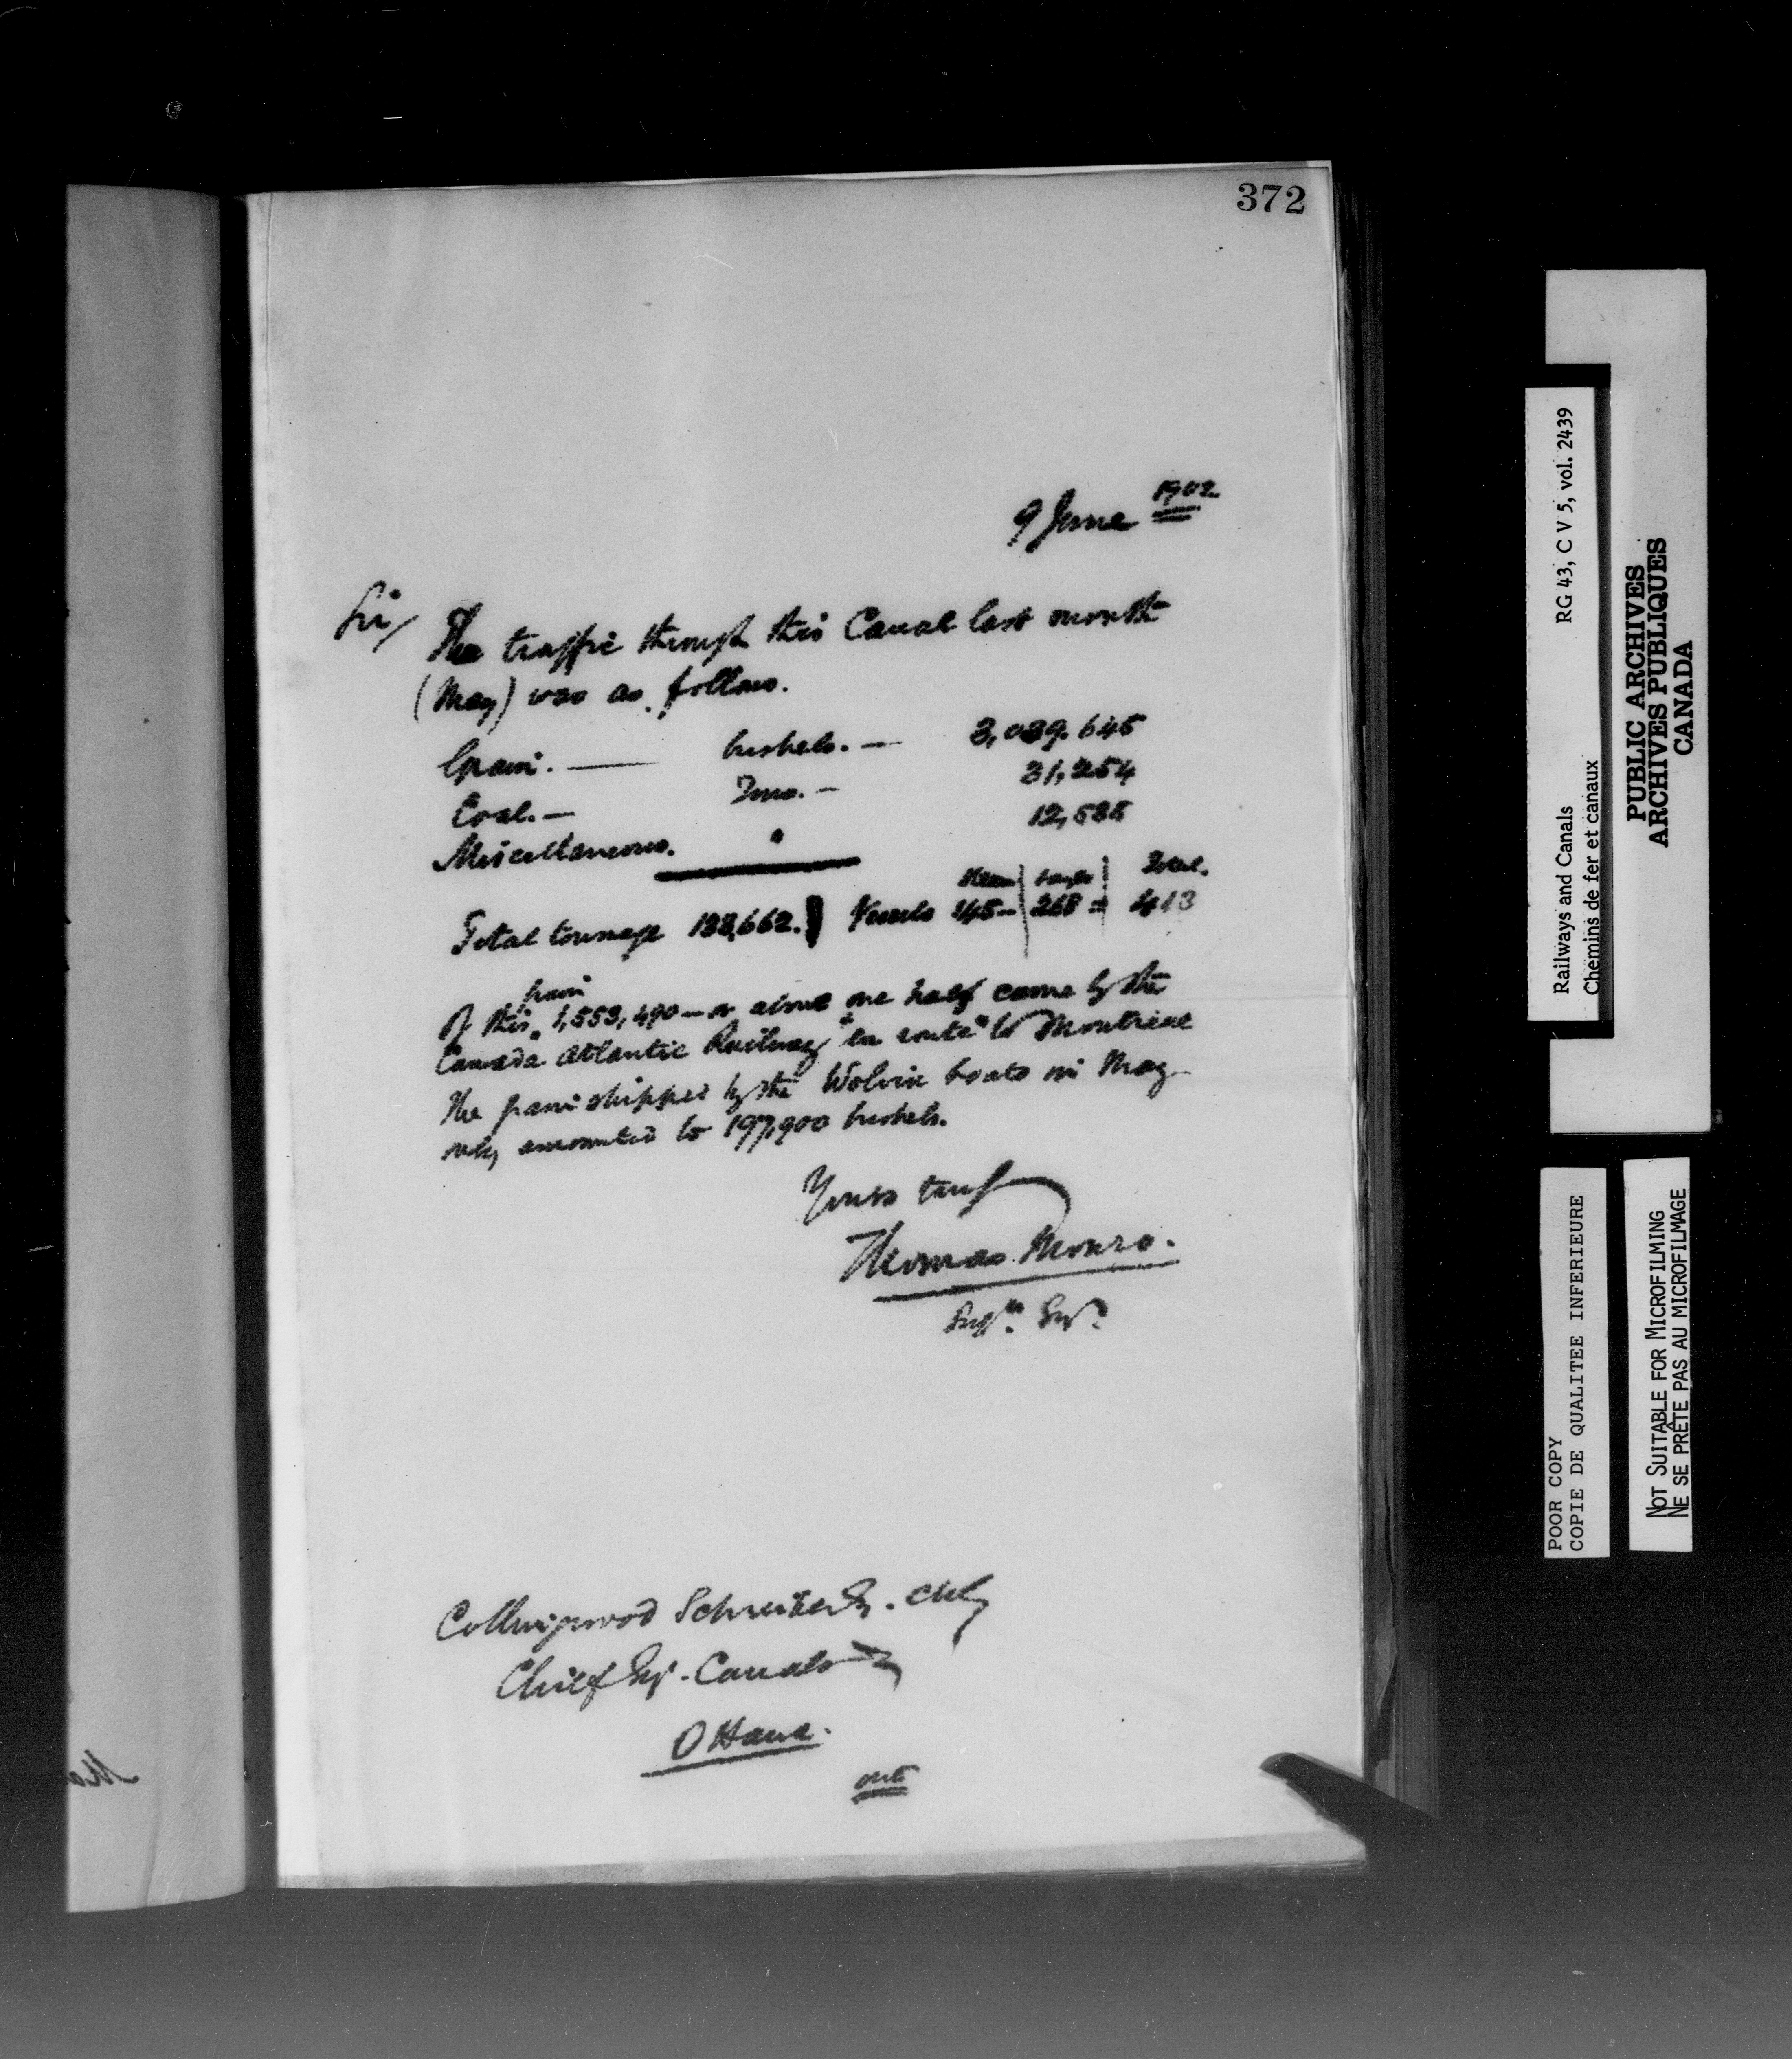 372
9 June 1902
Sir/
The traffic through this Canal last month
(May) was as follows.
Grain. — bushels. — 3,039,645
Coal. — Tons. — 31,254
Miscellaneous. " 12,535
Steam Barges Total.
Total tonnage 133,662. Vessels 145 — 268 = 413
grain
Of this 1,553,490 — or about one half came by the
Canada Atlantic Railway "en route" to Montreal
The grain shipped by the Wolvin boats in May
only amounted to 197,900 bushels.
Yours truly
Thomas Monro.
Supg. Engr.
Collingwood Schreiber Esq. CMG
Chief Engr. Canals
Ottawa.
Railways and Canals RG 43, C V 5, vol. 2439
Chemins de fer et canaux
PUBLIC ARCHIVES
ARCHIVES PUBLIQUES
CANADA
POOR COPY
COPIE DE QUALITEE INFERIEURE
NOT SUITABLE FOR MICROFILMING
NE SE PRÊTE PAS AU MICROFILMAGE